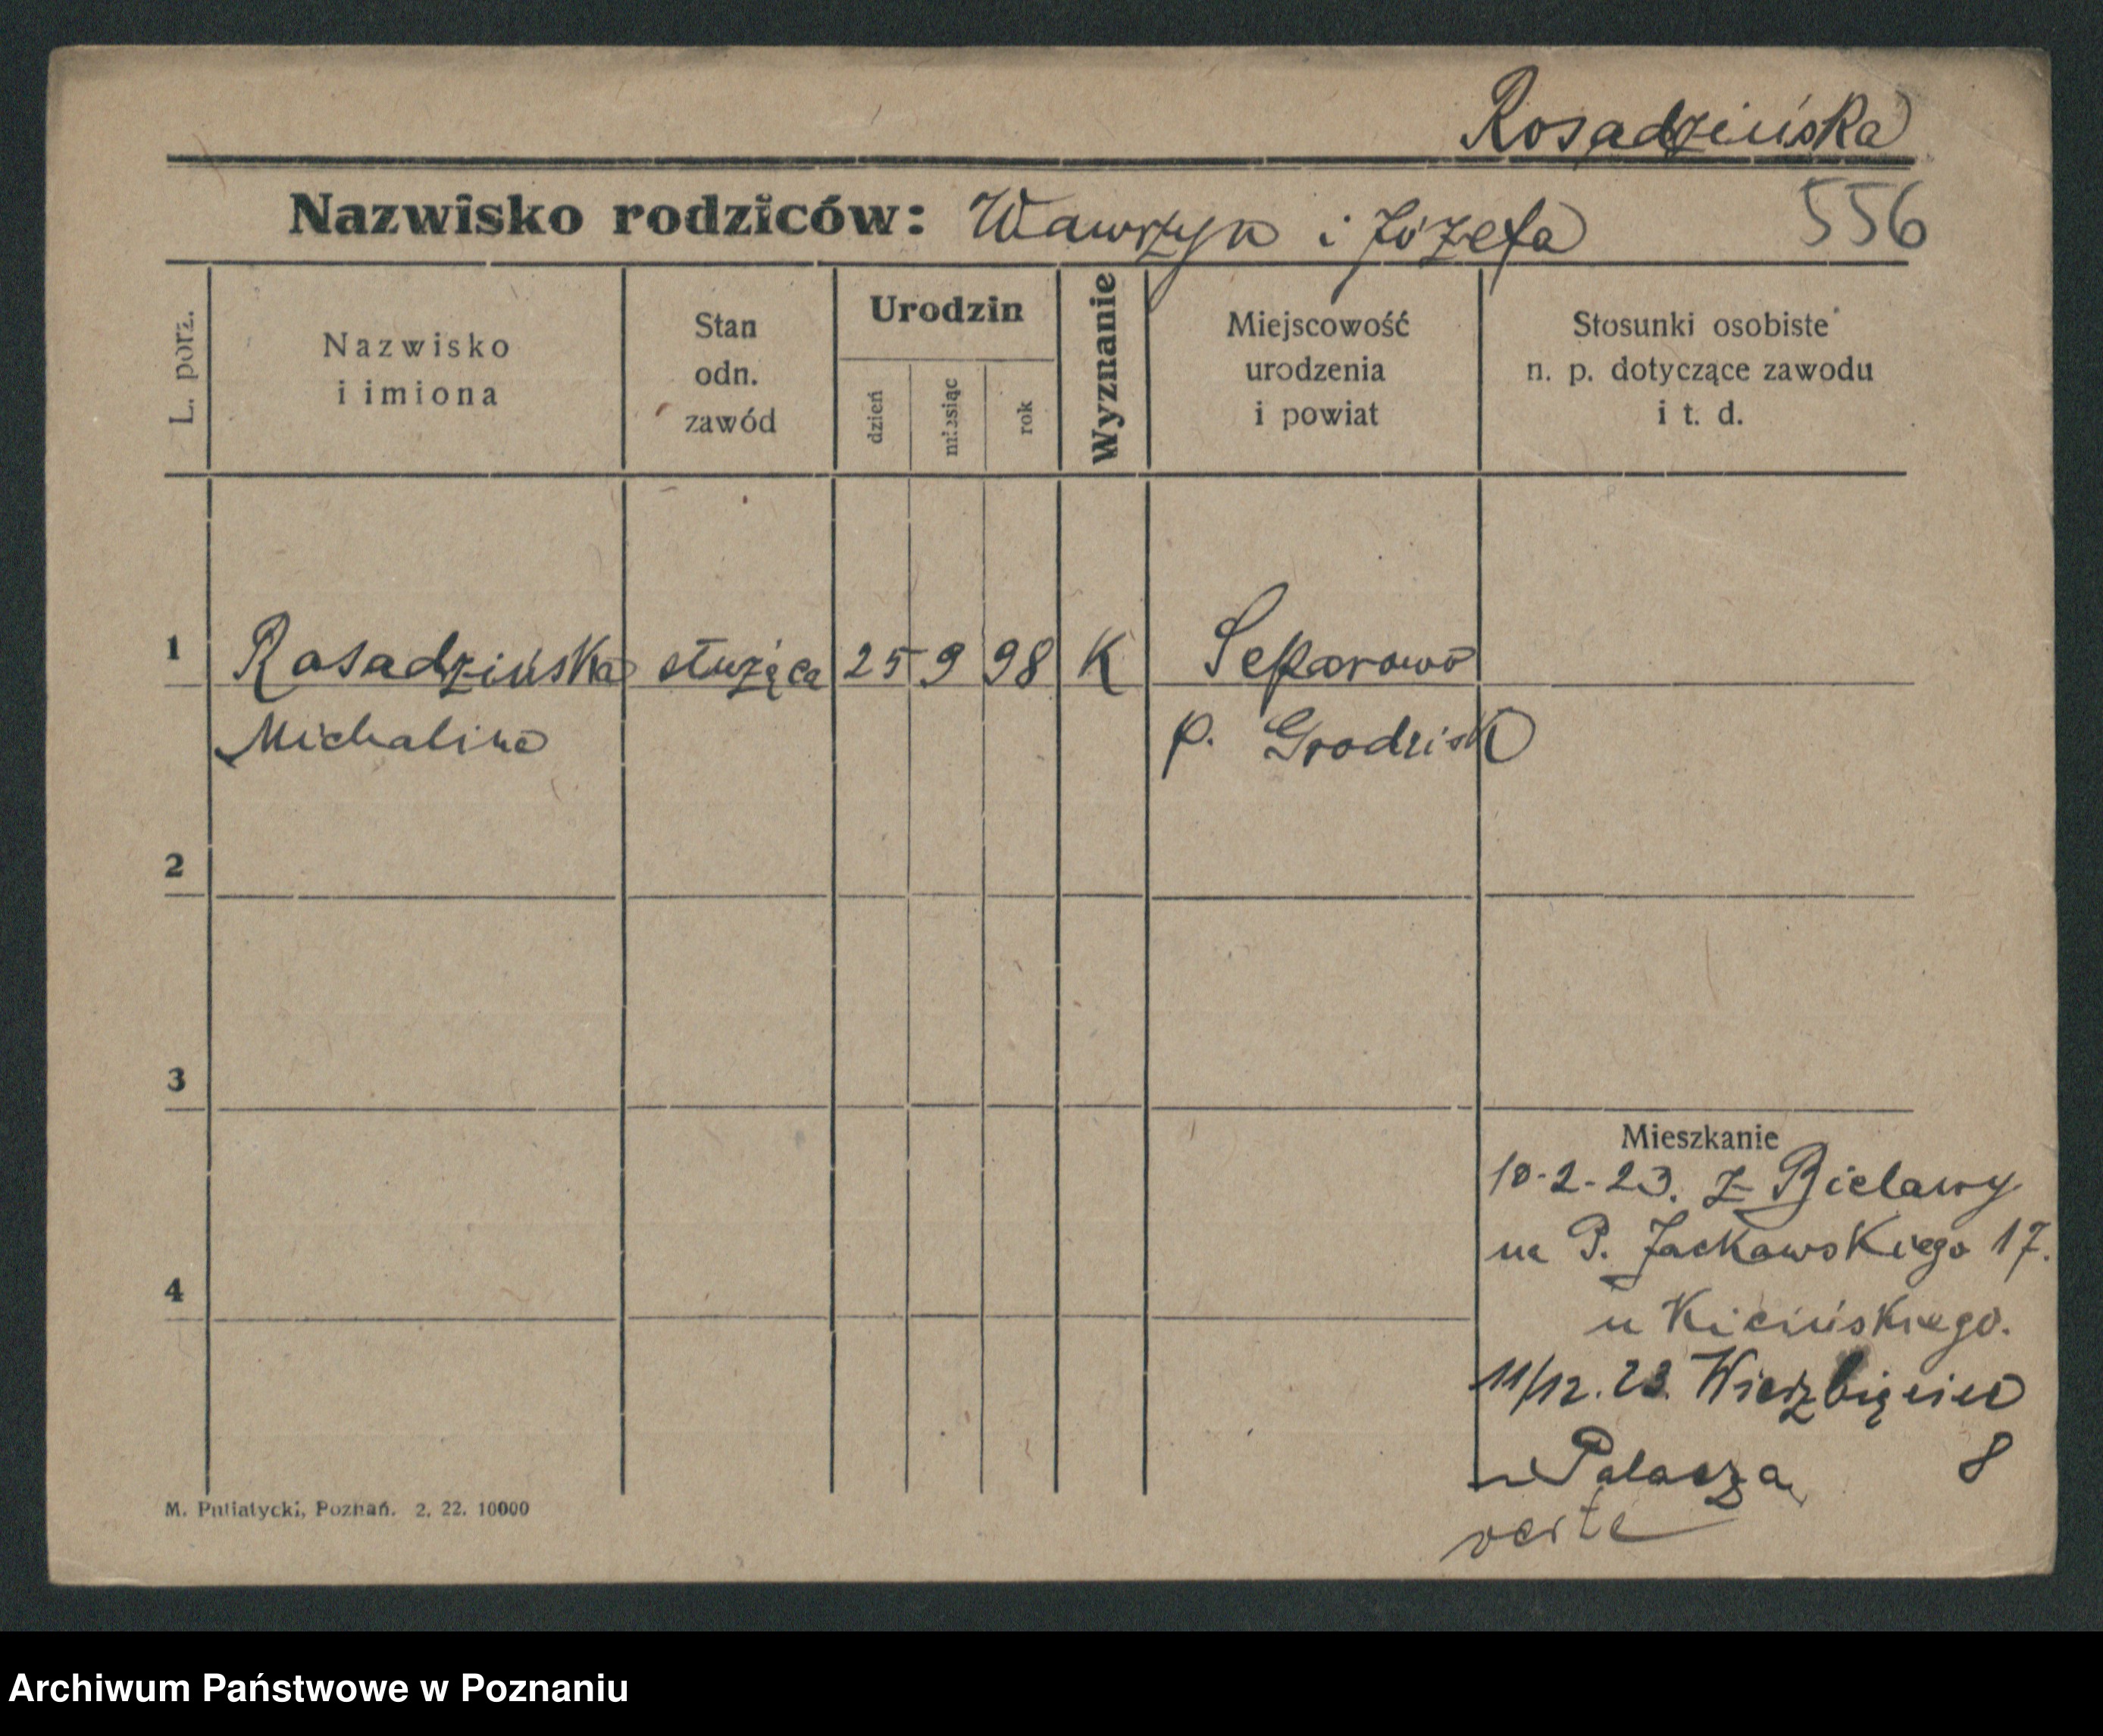 Rosadzińska
Nazwisko rodziców: Wawrzyn i Józefa 556
L. porz.
Nazwisko
i imiona
Stan
odn.
zawód
Urodzin
dzień
miesiąc
rok
Wyznanie
Miejscowość
urodzenia
i powiat
Stosunki osobiste
n. p. dotyczące zawodu
i t. d.
1 Rosadzińska służąca 25 9 98 K Sepárowo
Michalina p. Grodzisk
2
3
Mieszkanie
10-2-23. z Bielawy
na P. Jackowskiego 17.
4
u Kicińskiego.
11/12. 23. Wierzbięcice
Palacza 8
verte
M. Putiatycki, Poznań. 2. 22. 10000
Archiwum Państwowe w Poznaniu